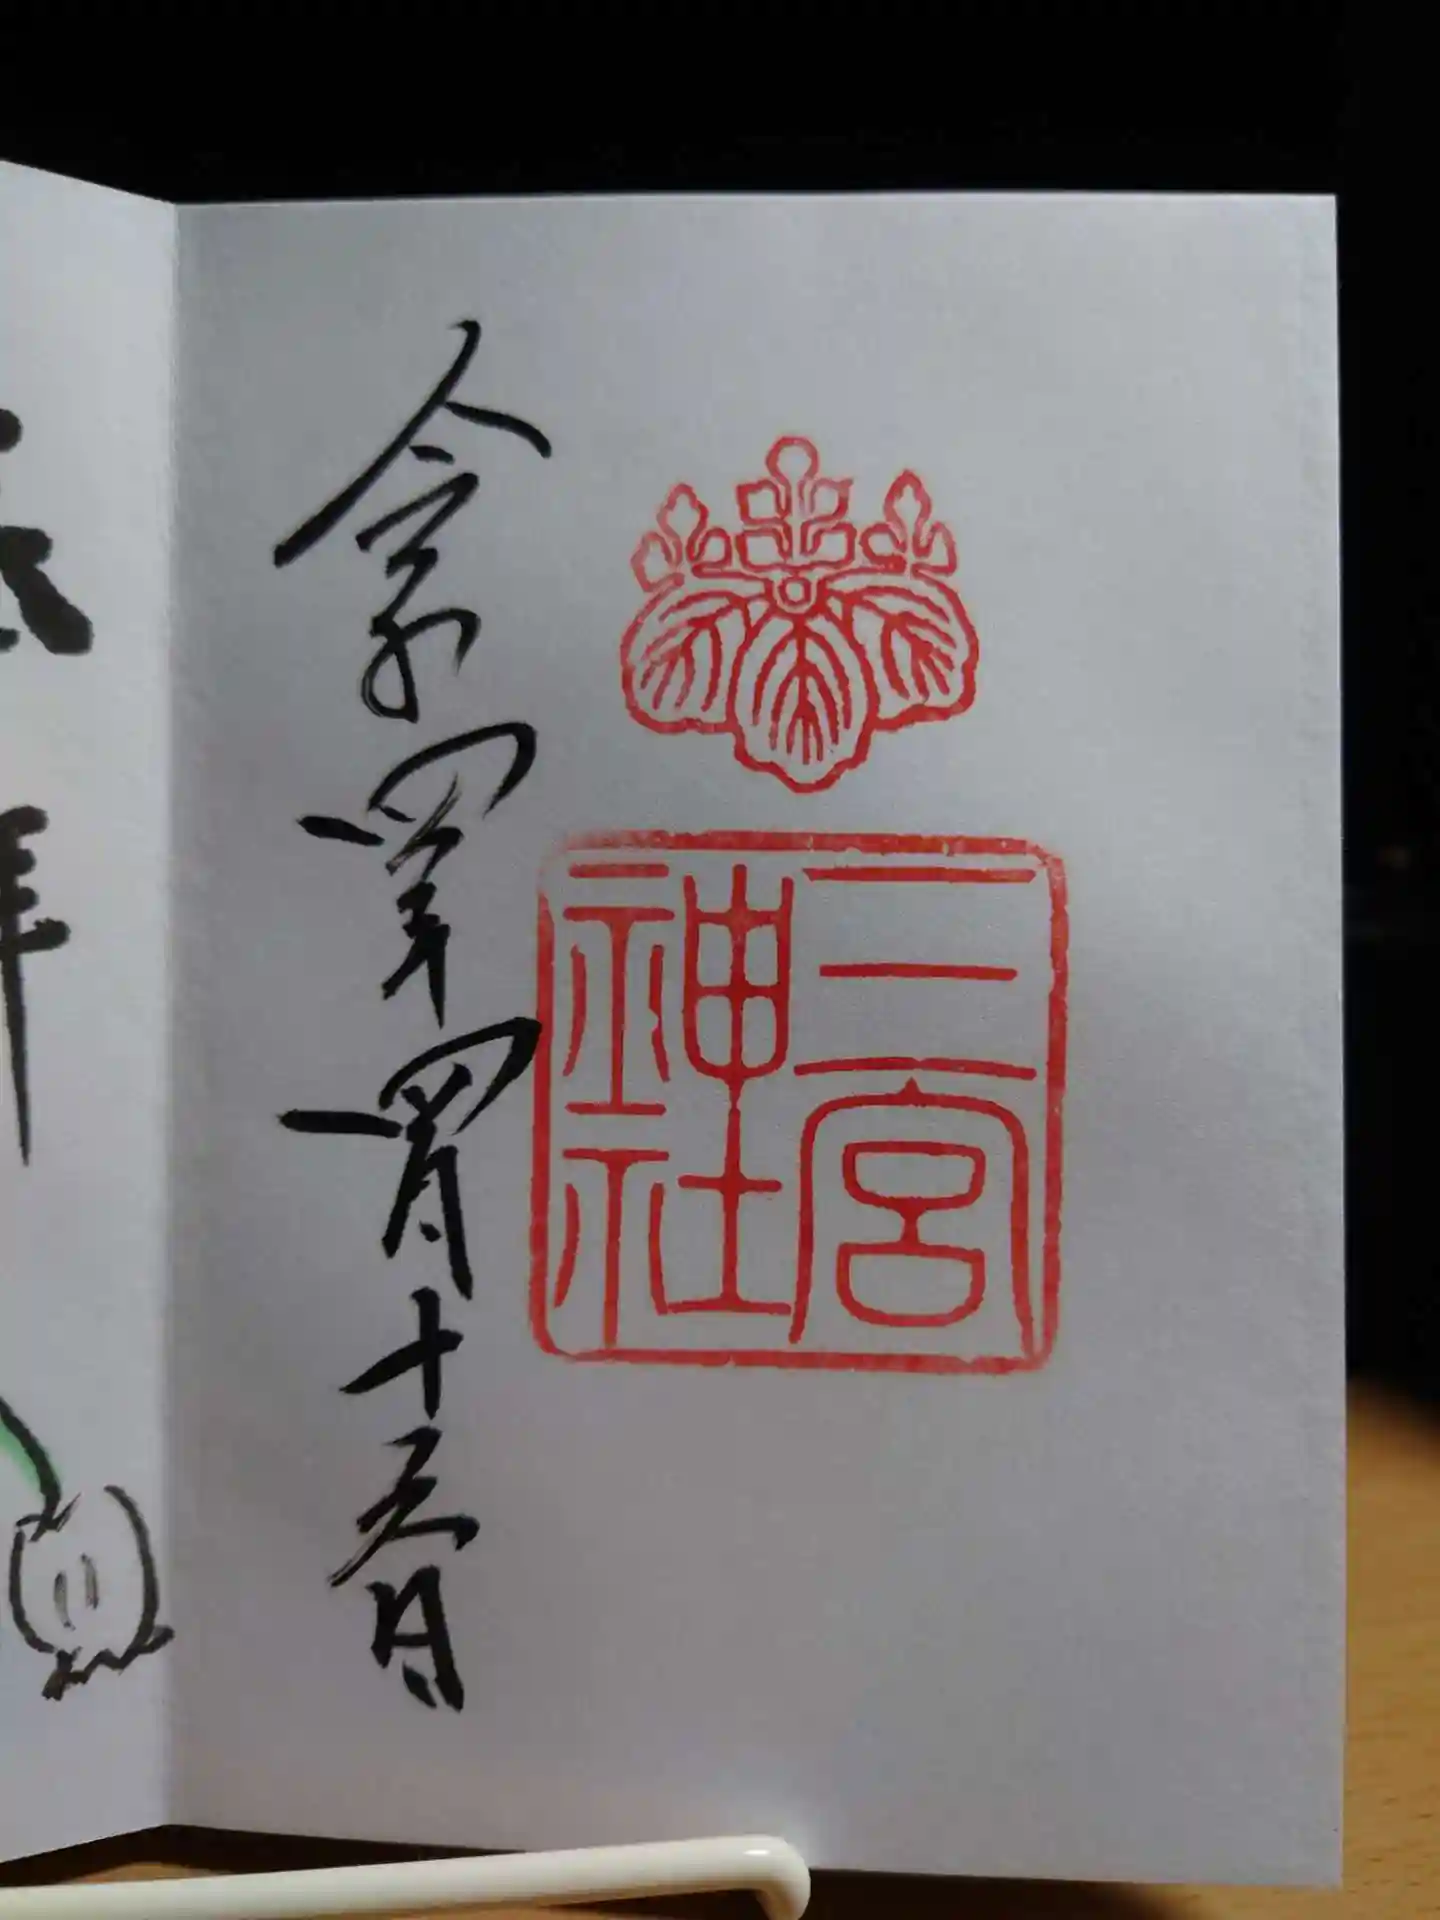 三宮
神社
令和四年四月十五日